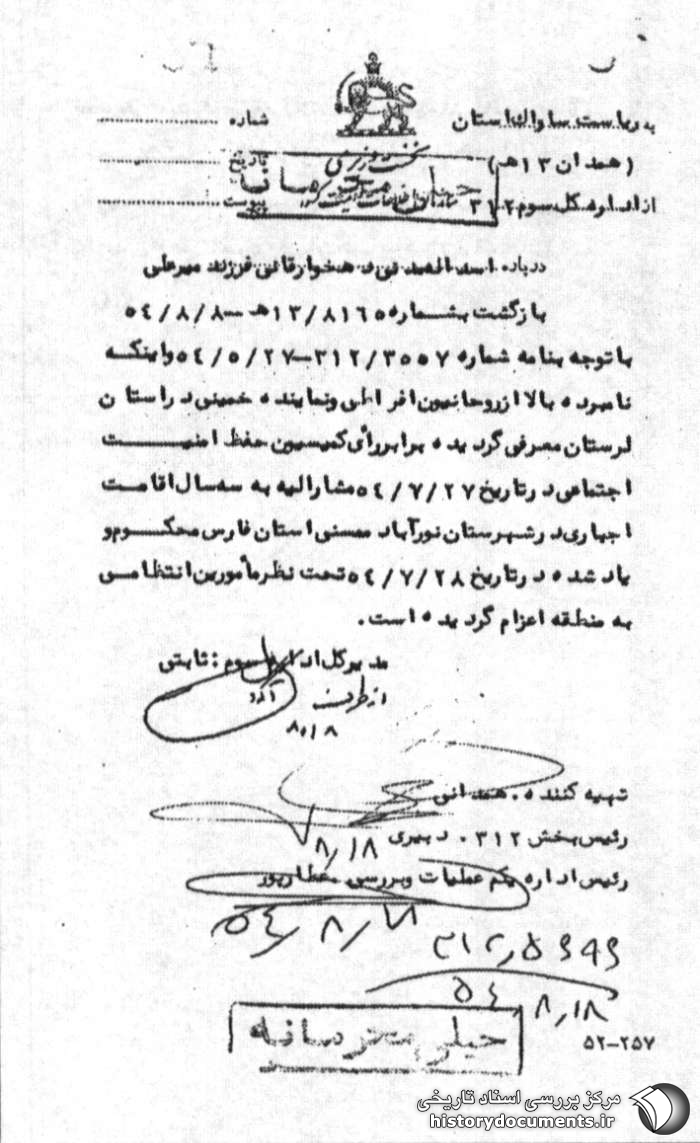 به ریاست ساواك استان
(همدان ۱۳ه)
از اداره كل سوم ۳۱۲
شماره
تاریخ
پیوست
نخست وزیری
سازمان اطلاعات و امنیت كشور
خیلی محرمانه
درباره اسداله مدنی دهخوارقانی فرزند میرعلی
بازگشت بشماره ۱۳/۸۱۶۵ه‍ـ ۵٤/۸/۸
با توجه بنامه شماره ۳۱۲/۳۵۵۷ـ۵٤/۵/۲۷ واینكه
نامبرده بالا از روحانیون افراطی و نماینده خمینی در استان
لرستان معرفی گردیده برابر رأی كمیسیون حفظ امنیت
اجتماعی در تاریخ ۵٤/۷/۲۷ مشارالیه به سه سال اقامت
اجباری در شهرستان نورآباد ممسنی استان فارس محكوم و
یاد شده در تاریخ ۵٤/۷/۲۸ تحت نظر مأمورین انتظامی
به منطقه اعزام گردیده است.
مدیر كل اداره سوم : ثابتی
از طرف
۸/۱۸
تهیه كننده . همدانی
رئیس بخش ۳۱۲ . دبیری
۸/۱۸
رئیس اداره یكم عملیات و بررسی عطارپور
۳۱۲/۵۹٤۹
۵٤/۸/۱۸
خیلی محرمانه
۵۲-۲۵۷
مركز بررسی اسناد تاریخی
historydocuments.ir